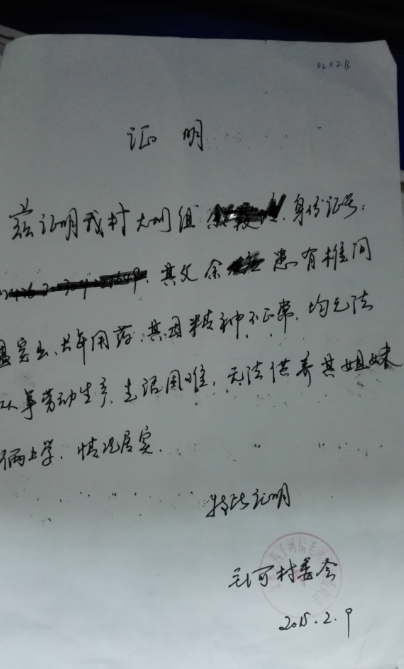 01028
证明
兹证明我村大圳组 身份证号：
其父余 患有椎间
盘突出、长年用药、其母精神不正常，均无法
从事劳动生产，生活困难，无法供养其姐妹
俩上学，情况属实。
特此证明
河村委会
2015.2.9